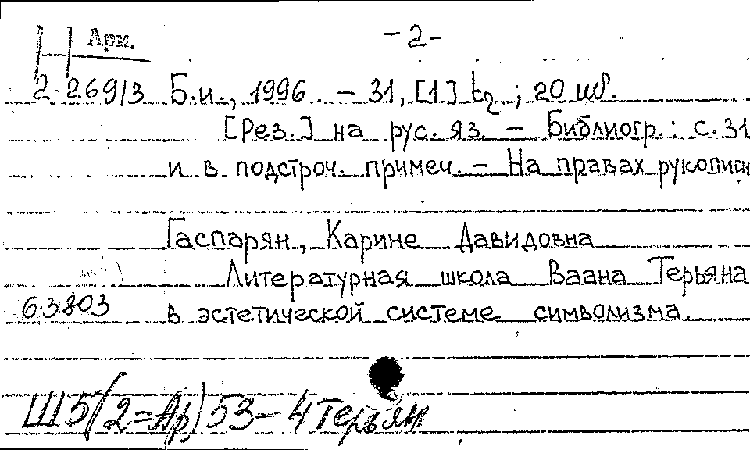 Арм. -2-
2 269/3 Б.и., 1996. - 31, [1] էջ ; 20 սմ.
[Рез.] на рус. яз. - Библиогр.: с. 31
и в подстроч. примеч. - На правах рукописи
Гаспарян, Карине Давидовна
Литературная школа Ваана Терьяна
63803 в эстетической системе символизма.
Ш5(2=Ар)53-4Терьян